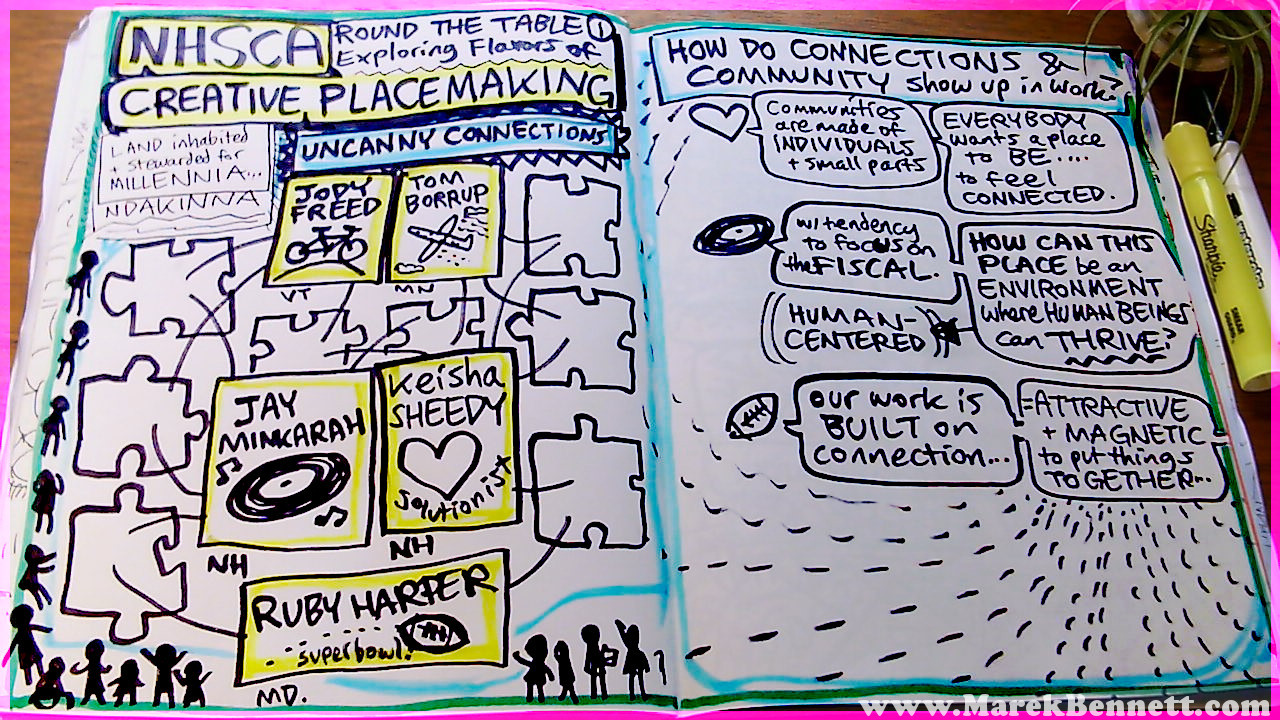 NHSCA
ROUND THE TABLE 1
Exploring Flavors of
CREATIVE PLACEMAKING
LAND inhabited
+ stewarded for
MILLENNIA...
NDAKINNA
UNCANNY CONNECTIONS
JODY
FREED
VT
TOM
BORRUP
MN
JAY
MINKARAH
NH
Keisha
SHEEDY
solutionist
NH
RUBY HARPER
superbowl!
MD.
HOW DO CONNECTIONS &
COMMUNITY show up in work?
Communities
are made of
INDIVIDUALS
+ small parts
EVERYBODY
wants a place
to BE....
to feel
CONNECTED.
w/ tendency
to focus on
the FISCAL.
HOW CAN THIS
PLACE be an
ENVIRONMENT
where HUMAN BEINGS
can THRIVE?
HUMAN-
CENTERED
our work is
BUILT on
connection...
=ATTRACTIVE
+ MAGNETIC
to put things
TOGETHER...
Sharpie
www.MarekBennett.com